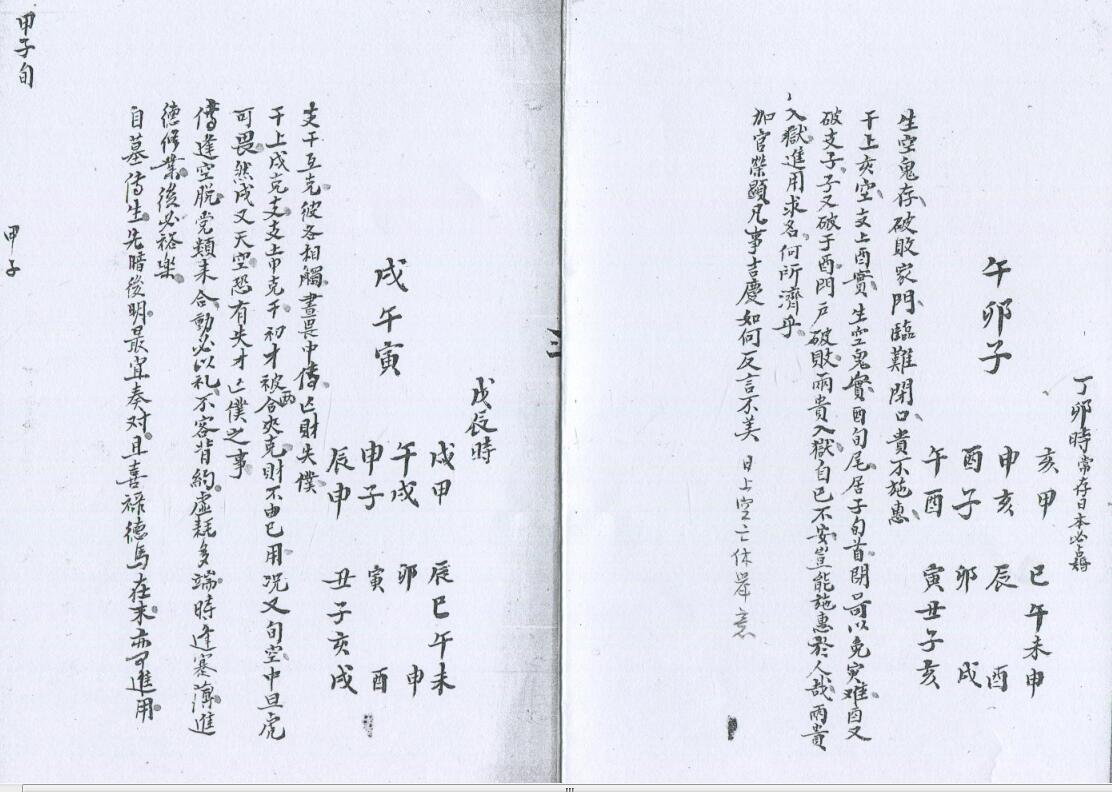 丁卯時常存日本必歸
午卯子
亥甲
申亥
酉子
午酉
巳午未申
辰 酉
卯 戌
寅丑子亥
生空鬼存破敗家門臨難閉口貴不施惠
干上亥空支上酉實生空鬼實酉旬尾居子旬首閉口可以免灾难酉又
破支子子又破于酉門戶破敗兩貴入獄自已不安豈能施惠於人哉兩貴
入獄進用求名何所濟乎
加官榮顯凡事吉慶如何反言不美 日上空亡休举意
三
戊辰時
戌午寅
戌甲
午戌
申子
辰申
辰巳午未
卯 申
寅 酉
丑子亥戌
支干互克彼各相觸晝畏中傳亡財失僕
干上戌克支支上申克干初才被酉合夾克財不由已用况又旬空中旦虎
可畏然戌又天空恐有失才亡僕之事
傳逢空脱党類来合動必以礼不容背約虛耗多端時逢蹇薄進
德修業後必裕樂
自墓傳生先暗後明最宜奏对且喜祿德馬在末亦可進用
甲子旬
甲子